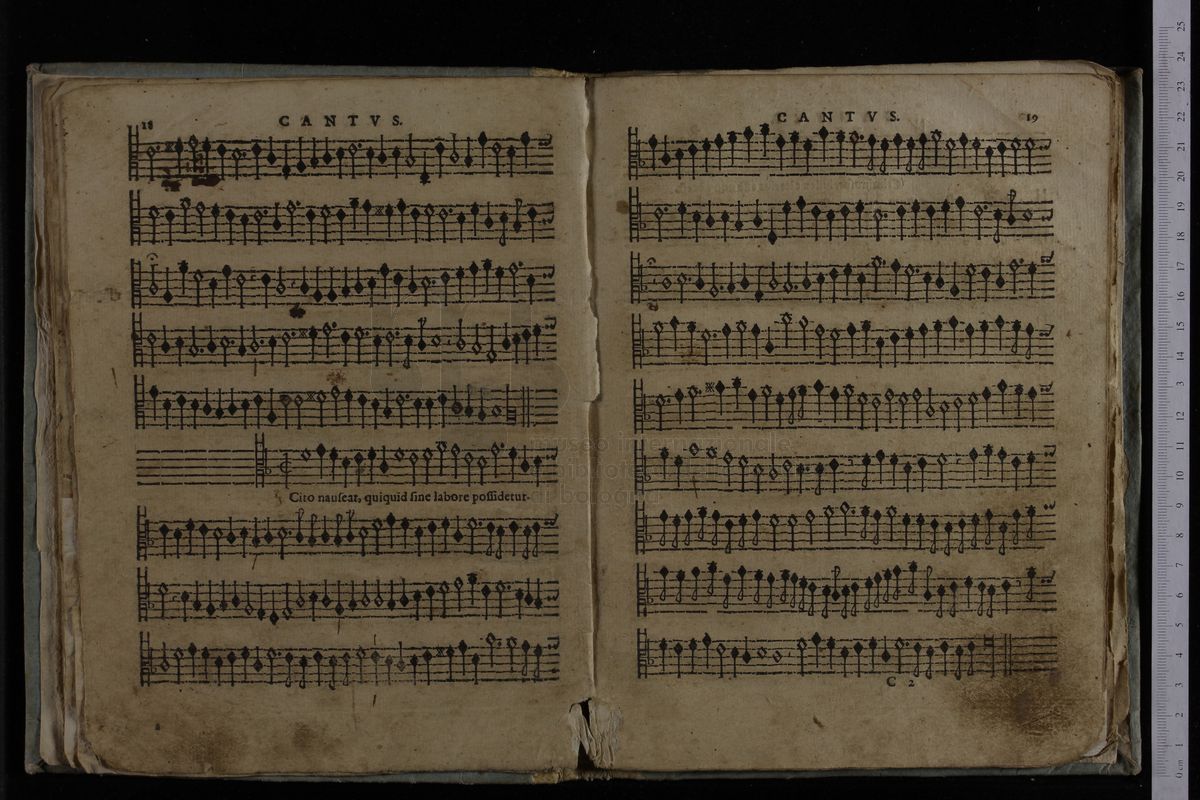 18
CANTVS.
Cito nauſeat, quiquid ſine labore poſſidetut-
CANTVS.
19
C 2
museo internazionale
e biblioteca della musica
di bologna
25
24
23
22
21
20
19
18
17
16
15
14
13
12
11
10
9
8
7
6
5
4
3
2
1
0 cm